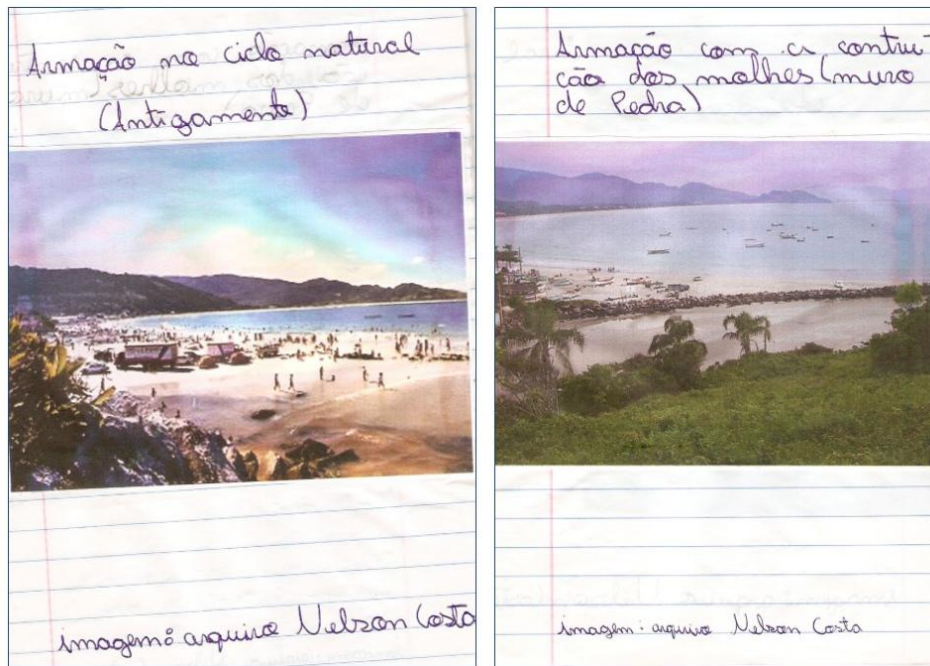 Armação no ciclo natural
(Antigamente)
imagem: arquivo Nelson Costa
Armação com a contrui-
ção dos molhes (muro
de Pedra)
imagem: arquivo Nelson Costa